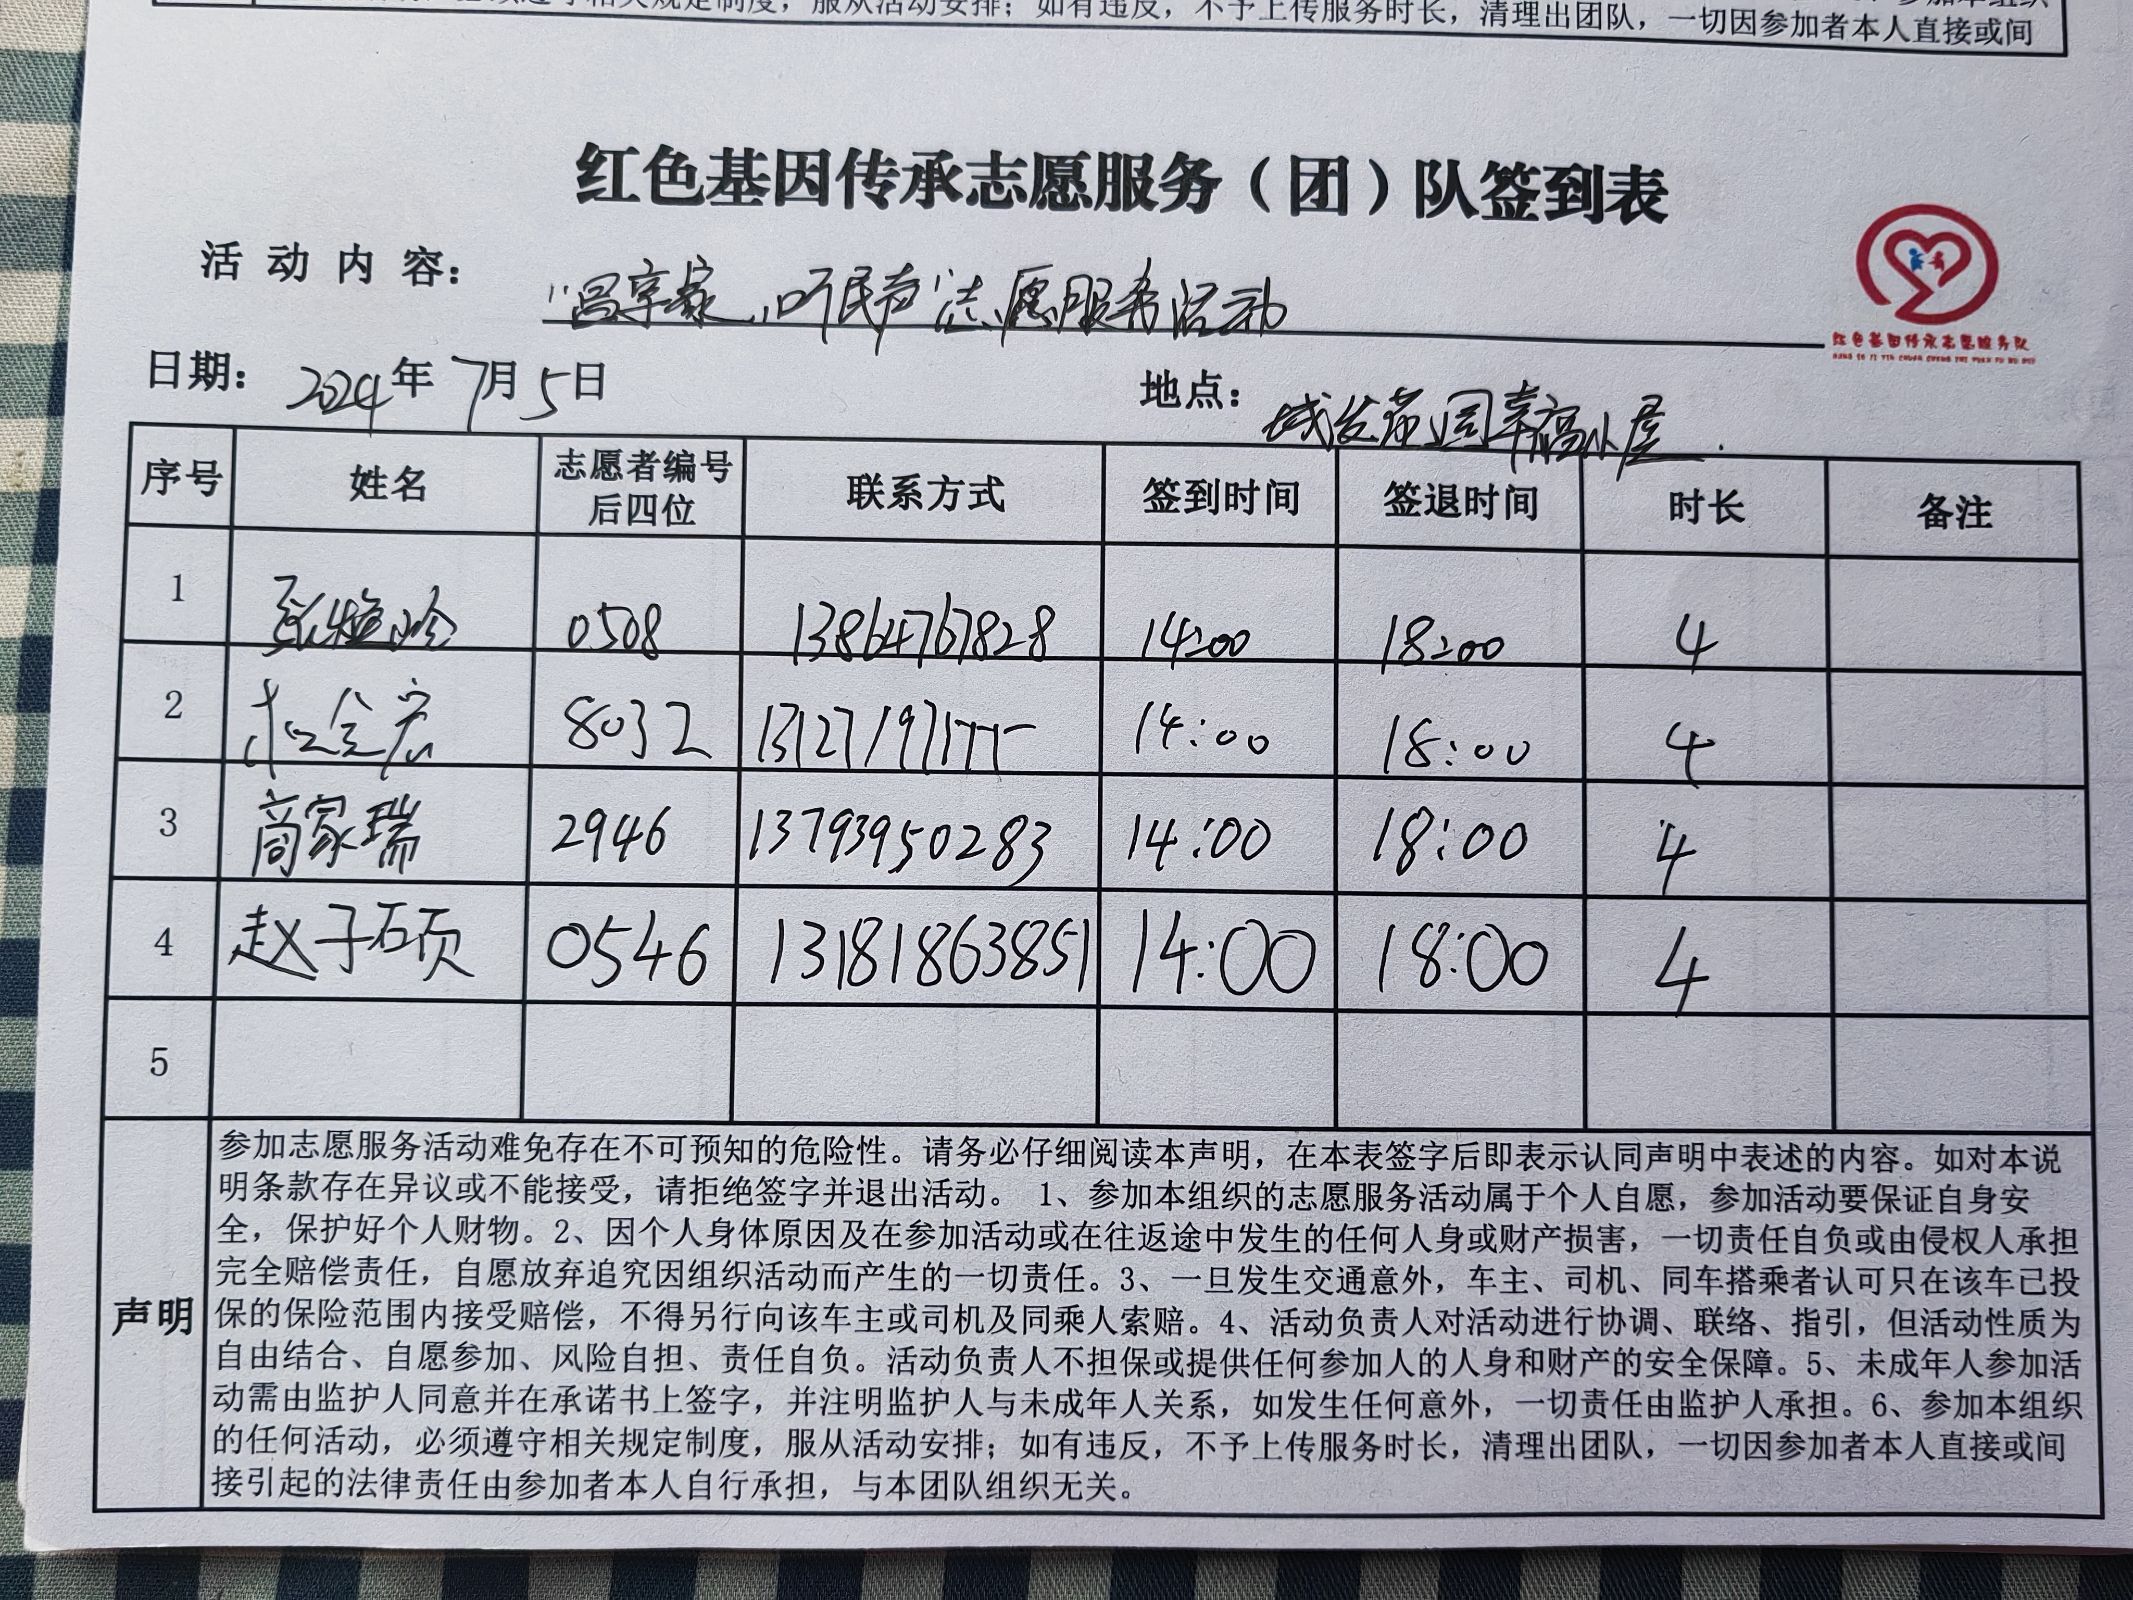 清理出团队，一切因参加者本人直接或间
红色基因传承志愿服务（团）队签到表
活动内容： “冒享家，听民声”志愿服务活动
红色基因传承志愿服务队
日期： 2024年7月5日 地点： 城发 幸福小屋
序号 姓名 志愿者编号后四位 联系方式 签到时间 签退时间 时长 备注
1 张 0508 13864767828 14:00 18:00 4
2 8032 14:00 18:00 4
3 商家瑞 2946 13793950283 14:00 18:00 4
4 赵子硕 0546 13181863851 14:00 18:00 4
5
声明
参加志愿服务活动难免存在不可预知的危险性。请务必仔细阅读本声明，在本表签字后即表示认同声明中表述的内容。如对本说
明条款存在异议或不能接受，请拒绝签字并退出活动。 1、参加本组织的志愿服务活动属于个人自愿，参加活动要保证自身安
全，保护好个人财物。2、因个人身体原因及在参加活动或在往返途中发生的任何人身或财产损害，一切责任自负或由侵权人承担
完全赔偿责任，自愿放弃追究因组织活动而产生的一切责任。3、一旦发生交通意外，车主、司机、同车搭乘者认可只在该车已投
保的保险范围内接受赔偿，不得另行向该车主或司机及同乘人索赔。4、活动负责人对活动进行协调、联络、指引，但活动性质为
自由结合、自愿参加、风险自担、责任自负。活动负责人不担保或提供任何参加人的人身和财产的安全保障。5、未成年人参加活
动需由监护人同意并在承诺书上签字，并注明监护人与未成年人关系，如发生任何意外，一切责任由监护人承担。6、参加本组织
的任何活动，必须遵守相关规定制度，服从活动安排；如有违反，不予上传服务时长，清理出团队，一切因参加者本人直接或间
接引起的法律责任由参加者本人自行承担，与本团队组织无关。